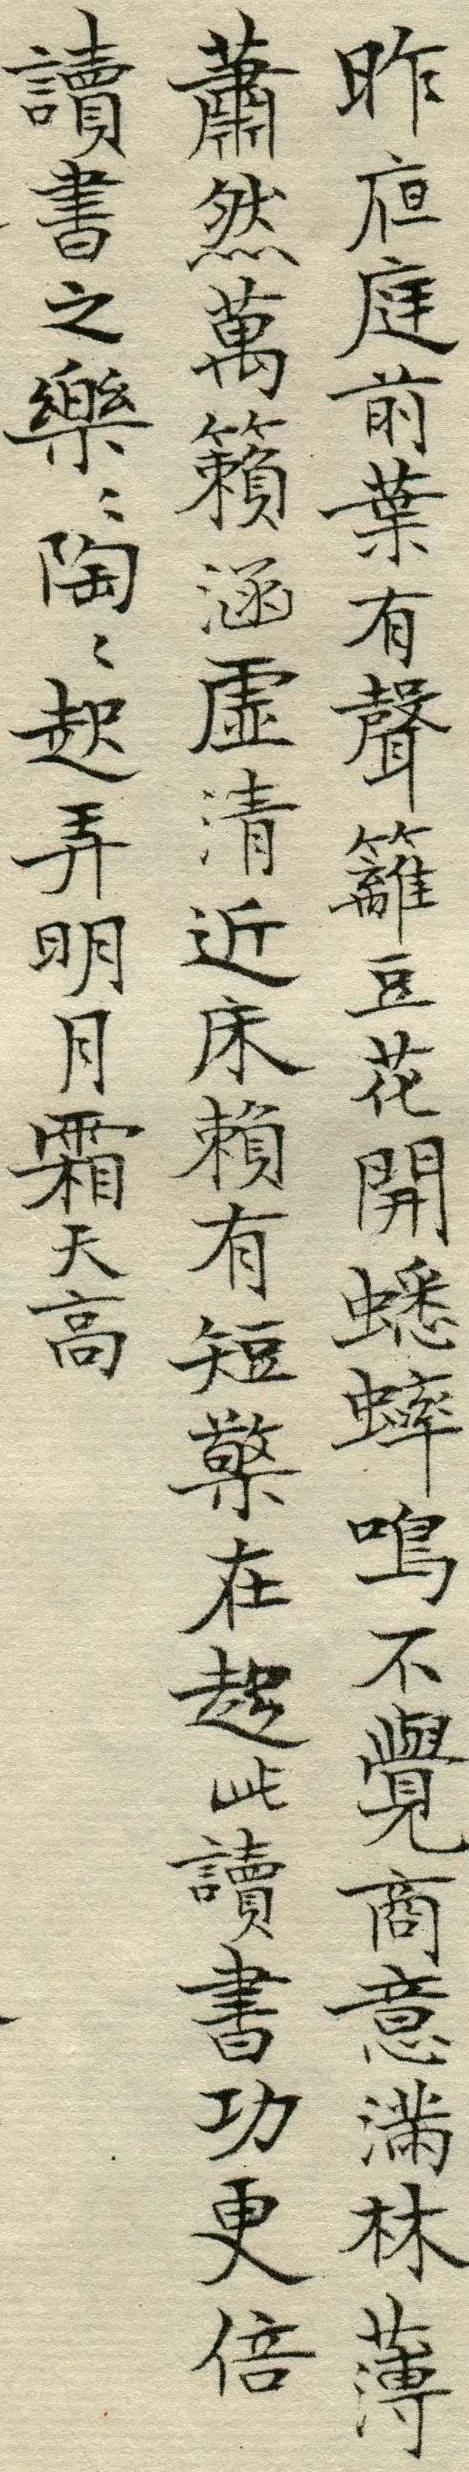 昨夜庭前葉有聲籬豆花開蟋蟀鳴不覺商意滿林薄
蕭然萬籟涵虛清近床賴有短檠在起此讀書功更倍
讀書之樂〻陶〻起弄明月霜天高